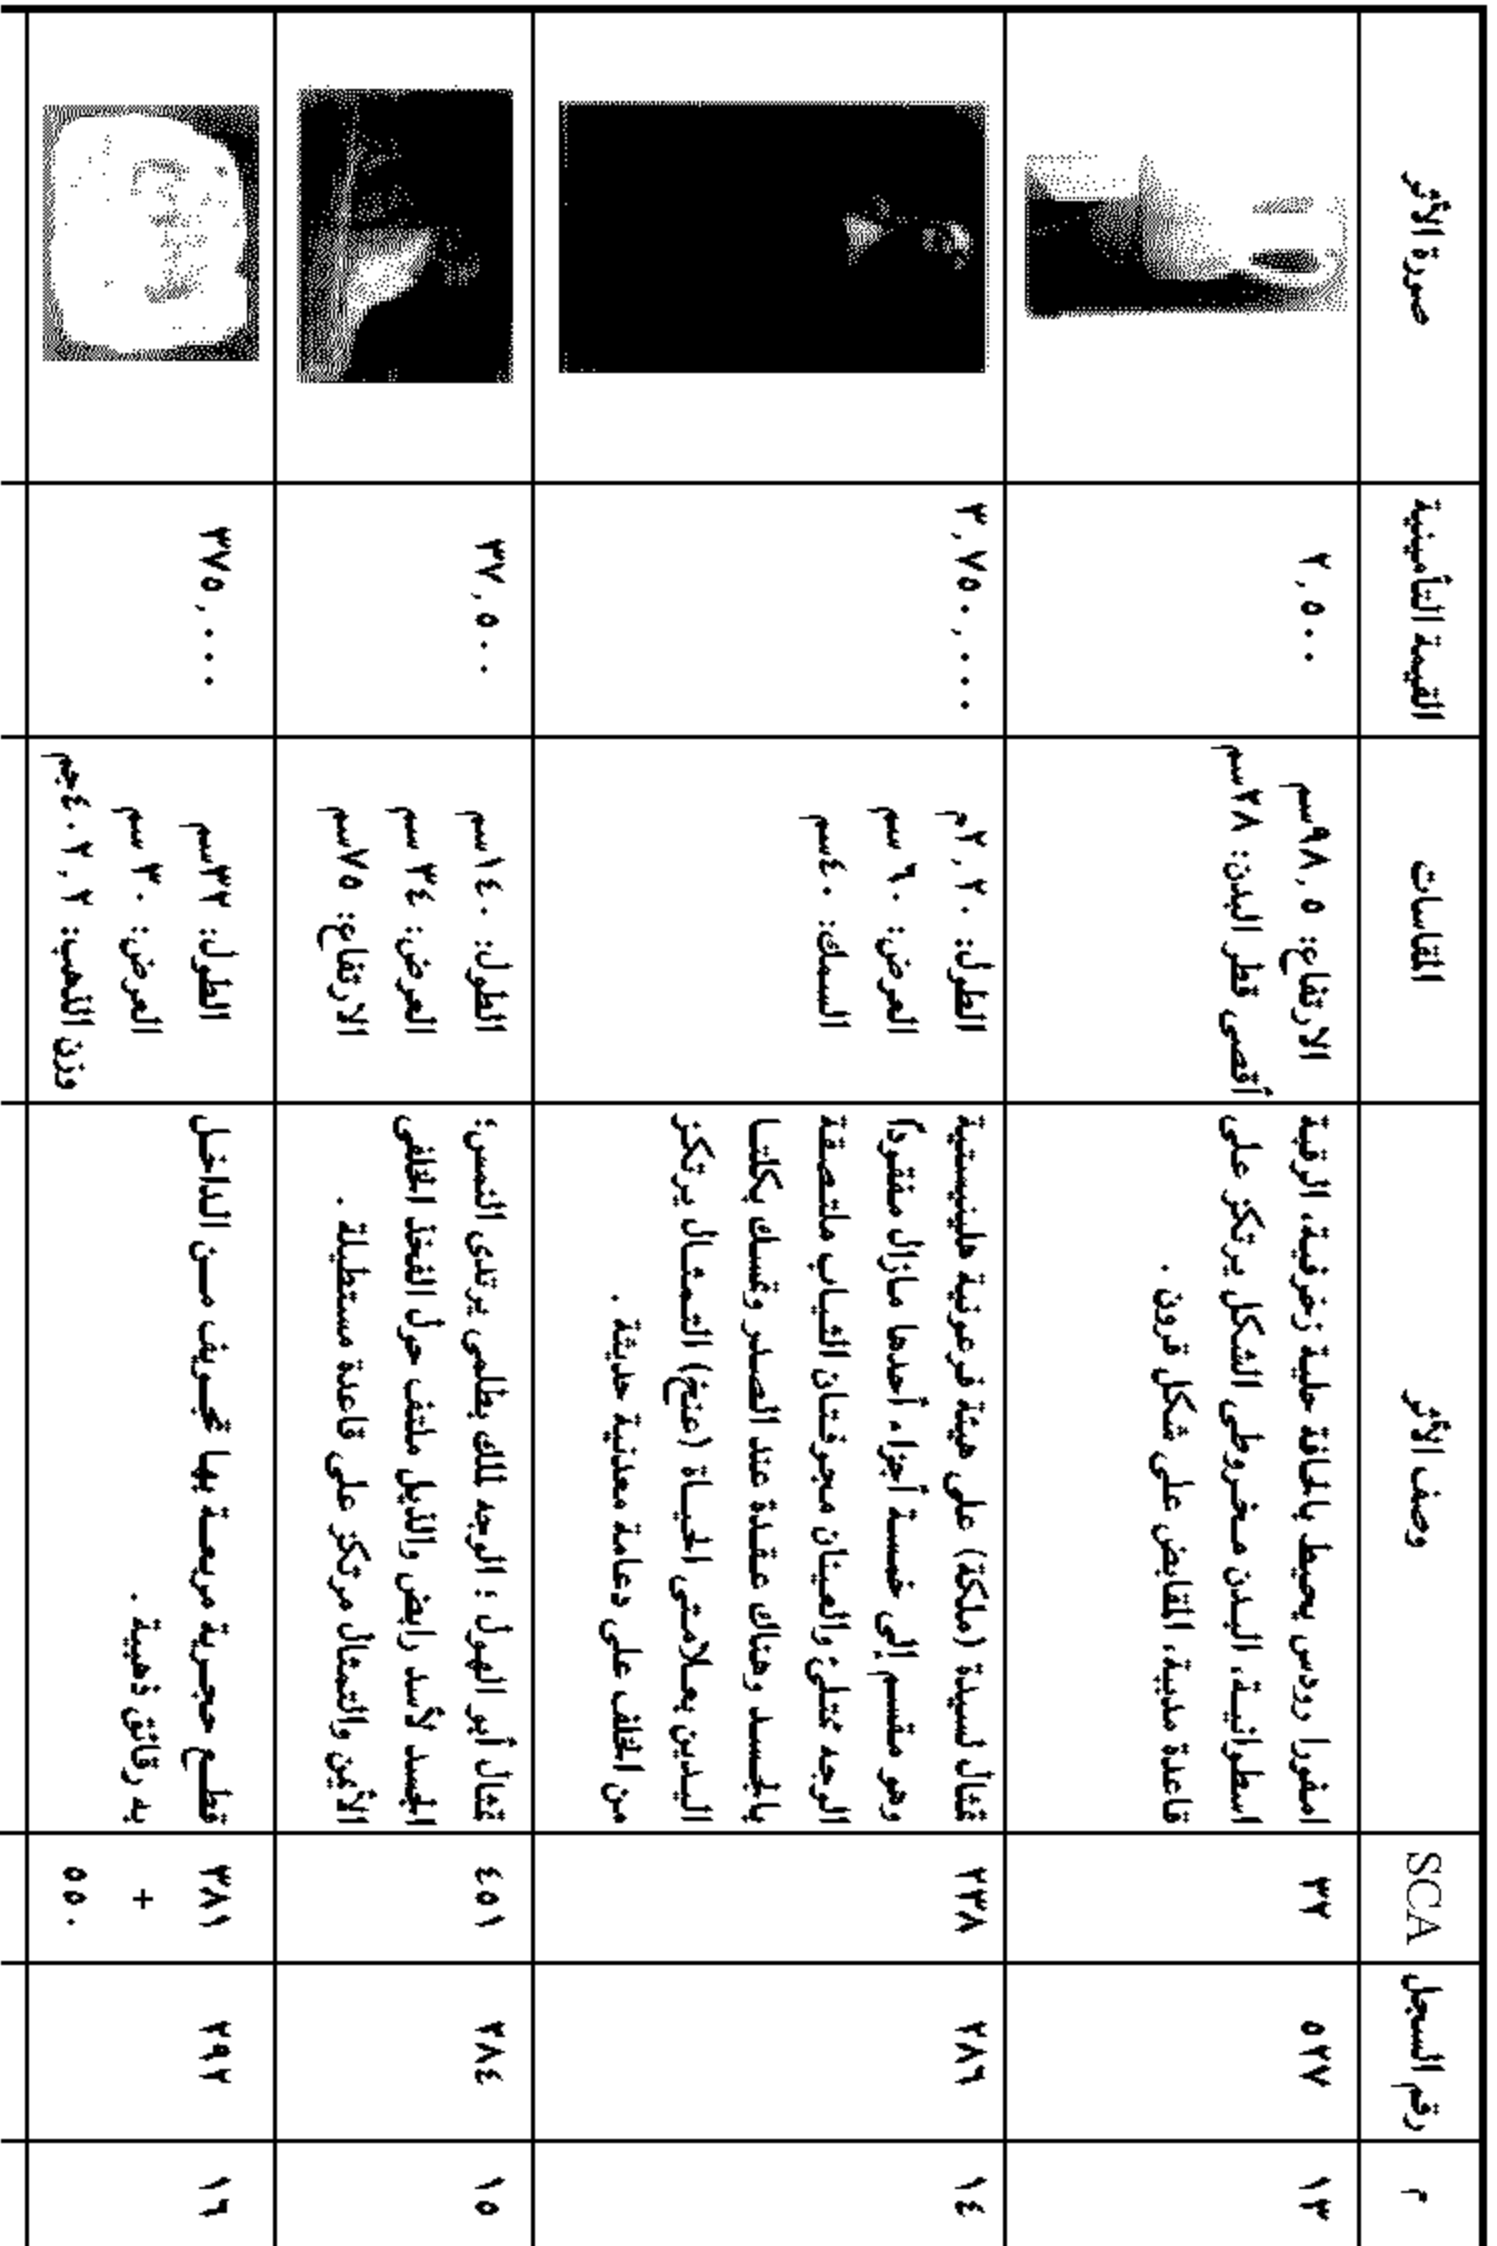 م
رقم السجل
SCA
وصف الأثر
المقاسات
القيمة التأمينية
صورة الأثر
١٣
٥٢٧
٣٢
امفورا رودس يحيط بالحافة حلية زخرفية، الرقبة
اسطوانية، البدن مخروطى الشكل يرتكز على
قاعدة مدببة، المقابض على شكل قرون .
الارتفاع: ٩٨,٥سم
أقصى قطر البدن: ٢٨سم
٢,٥٠٠
١٤
٢٨٦
٢٣٨
تمثال لسيدة (ملكة) على هيئة فرعونية هلينيستية
وهو مقسم إلى خمسة أجزاء أحدها مازال مفقوداً
الوجه ممتلئ والعينان مجوفتان الثياب ملتصقة
بالجسد وهناك عقدة عند الصدر وتمسك بكلتا
اليدين بعلامتى الحياة (عنخ) التمثال يرتكز
من الخلف على دعامة معدنية حديثة .
الطول: ٢,٢٠م
العرض: ٦٠ سم
السمك: ٤٠سم
٣,٧٥٠,٠٠٠
١٥
٢٨٤
٤٥١
تمثال أبو الهول : الوجه لملك بطلمى يرتدى النمس:
الجسد لأسد رابض والذيل ملتف حول الفخذ الخلفى
الأيمن والتمثال مرتكز على قاعدة مستطيلة .
الطول: ١٤٠سم
العرض: ٣٤ سم
الارتفاع: ٧٥سم
٣٧,٥٠٠
١٦
٢٩٢
٣٨١
+
٥٥٠
قطع حجرية مربعة بها تجويف من الداخل
به رقائق ذهبية .
الطول: ٣٢سم
العرض: ٣٠ سم
وزن الذهب: ٤٠٢,٢جم
٣٧٥,٠٠٠